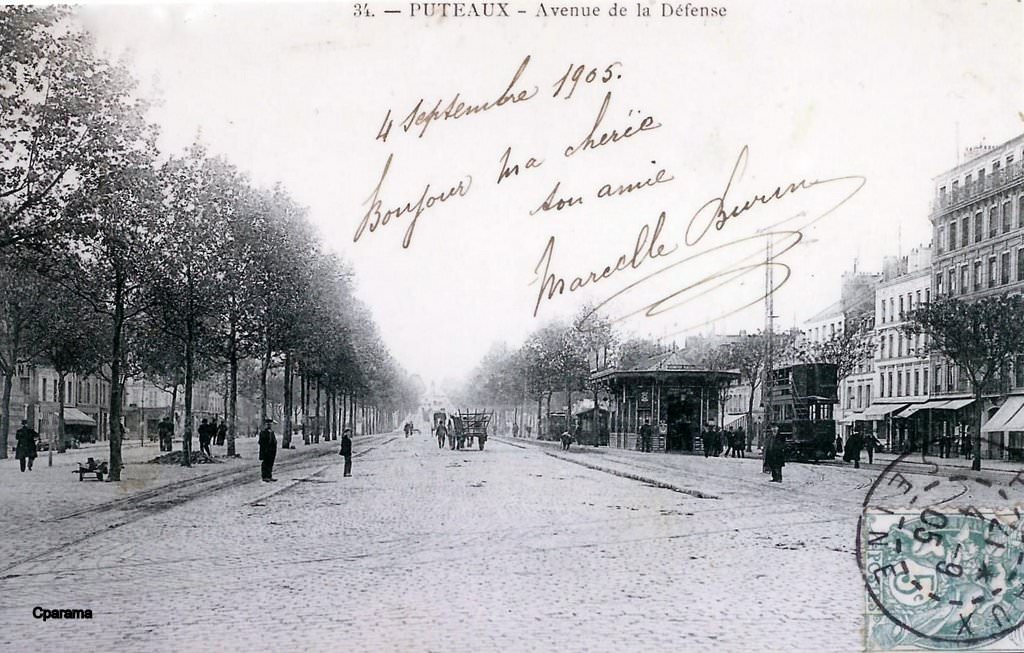 34. — PUTEAUX - Avenue de la Défense
4 Septembre 1905.
Bonjour ma cherïe
ton amie
Marcelle
Cparama
5
4 -9
05
SEINE